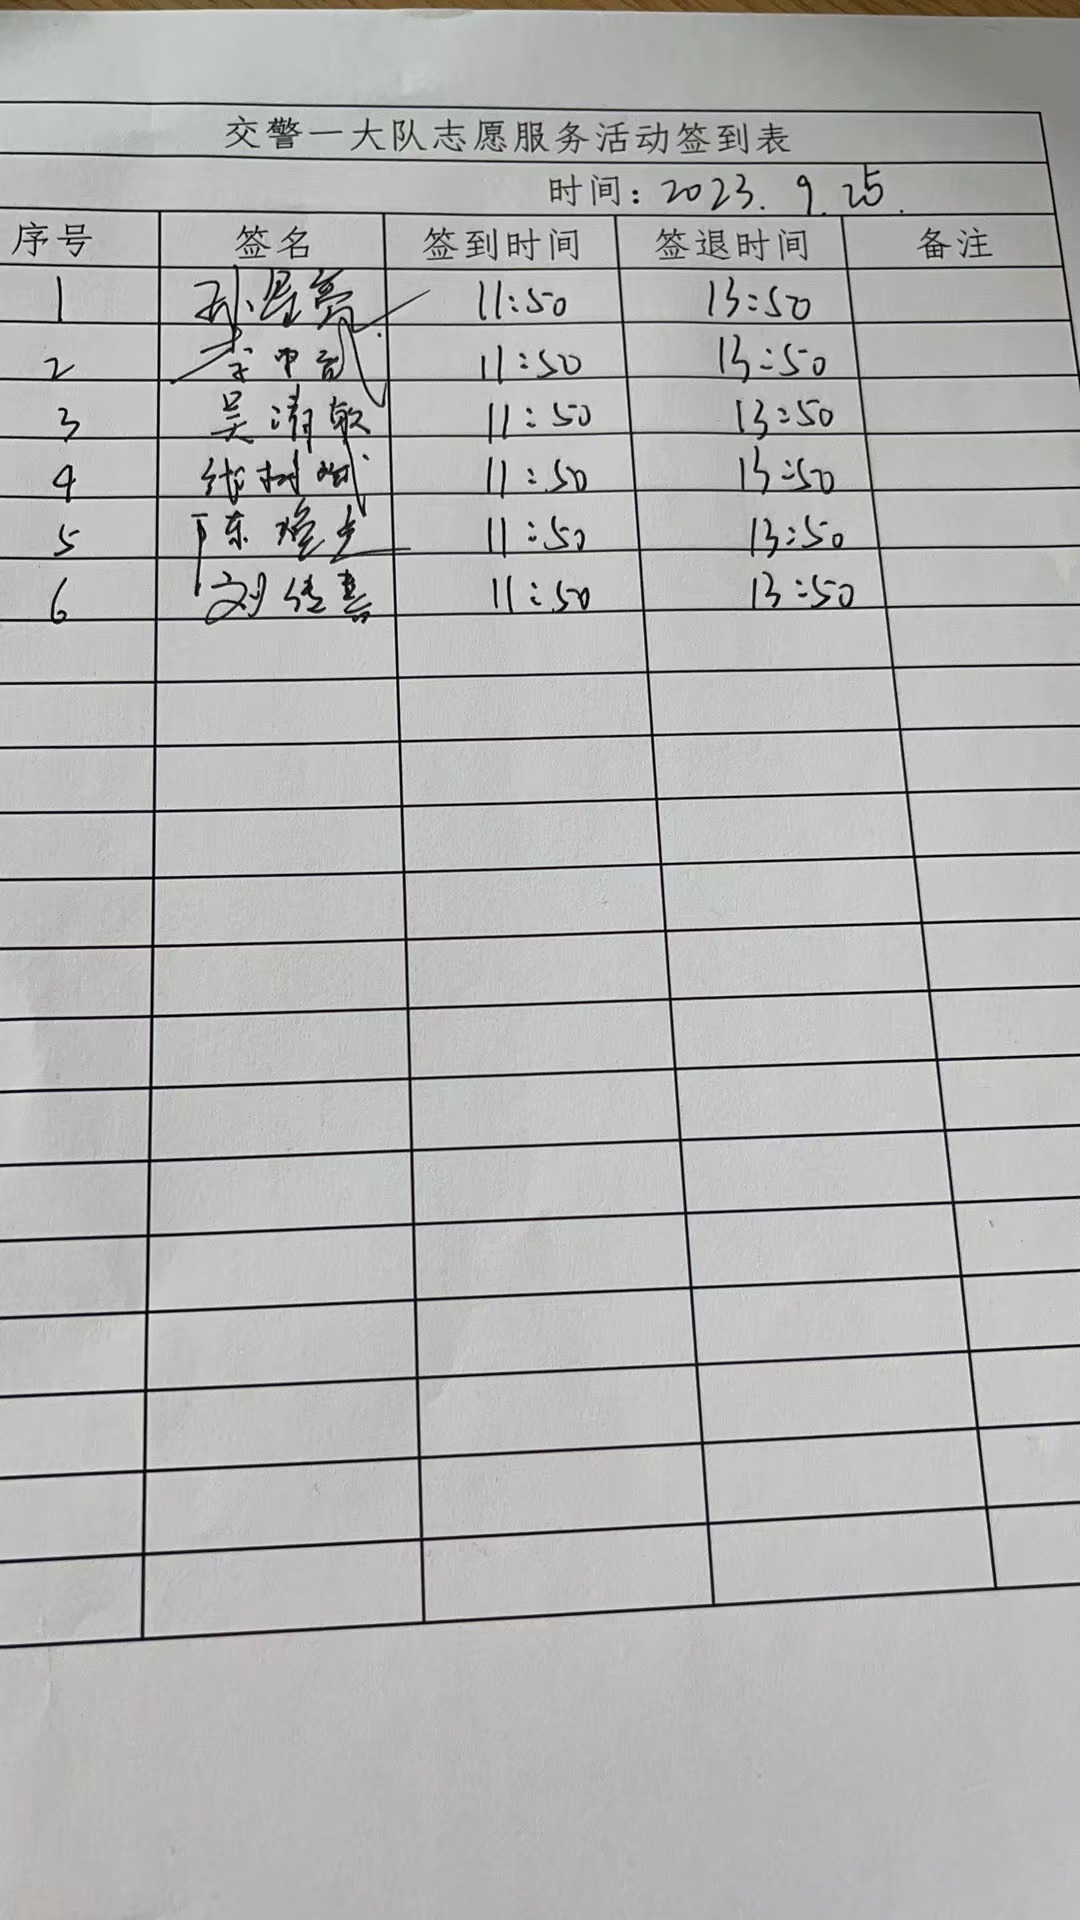 交警一大队志愿服务活动签到表
时间：2023.9.25.
序号 签名 签到时间 签退时间 备注
1 孙星亮 11:50 13:50
2 李中 11:50 13:50
3 吴清敏 11:50 13:50
4 树斌 11:50 13:50
5 陈 11:50 13:50
6 刘传喜 11:50 13:50